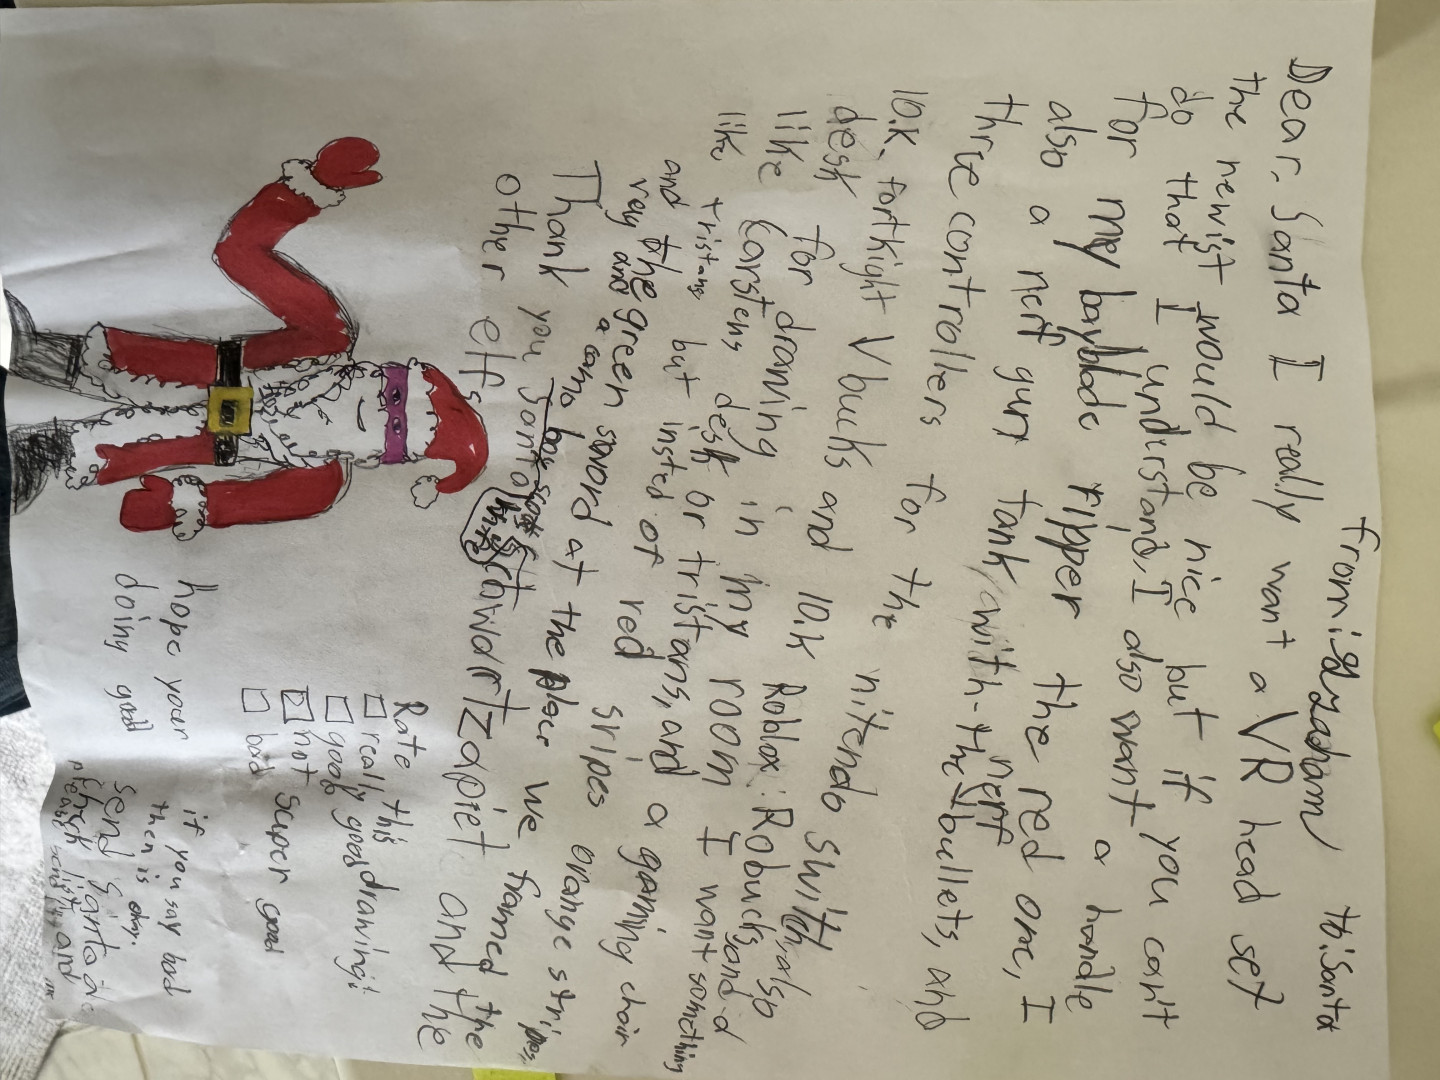 from: to: Santa
Dear, Santa I really want a VR head set
the newist would be nice but if you can't
do that I understand, I also want
for my bayblade ripper a handle
also a nerf gun tank, with the nerf bullets, and
the red one, I
three controllers for the nitendo switch, also
10.K. fortnight Vbucks and 10.k Roblox: Robucks, and a
desk for drawing in my room I want something
like Carstens desk or tristans, and a gaming chair
like tristans but insted of red stripes orange stripes,
and the green sword at the place we framed the
very and a camo
Thank you Santa and the
other elfs
Rate this drawing:
really good
good
not super good
bad
hope your
doing good
if you say bad
then is okay.
send Santa
please check list and